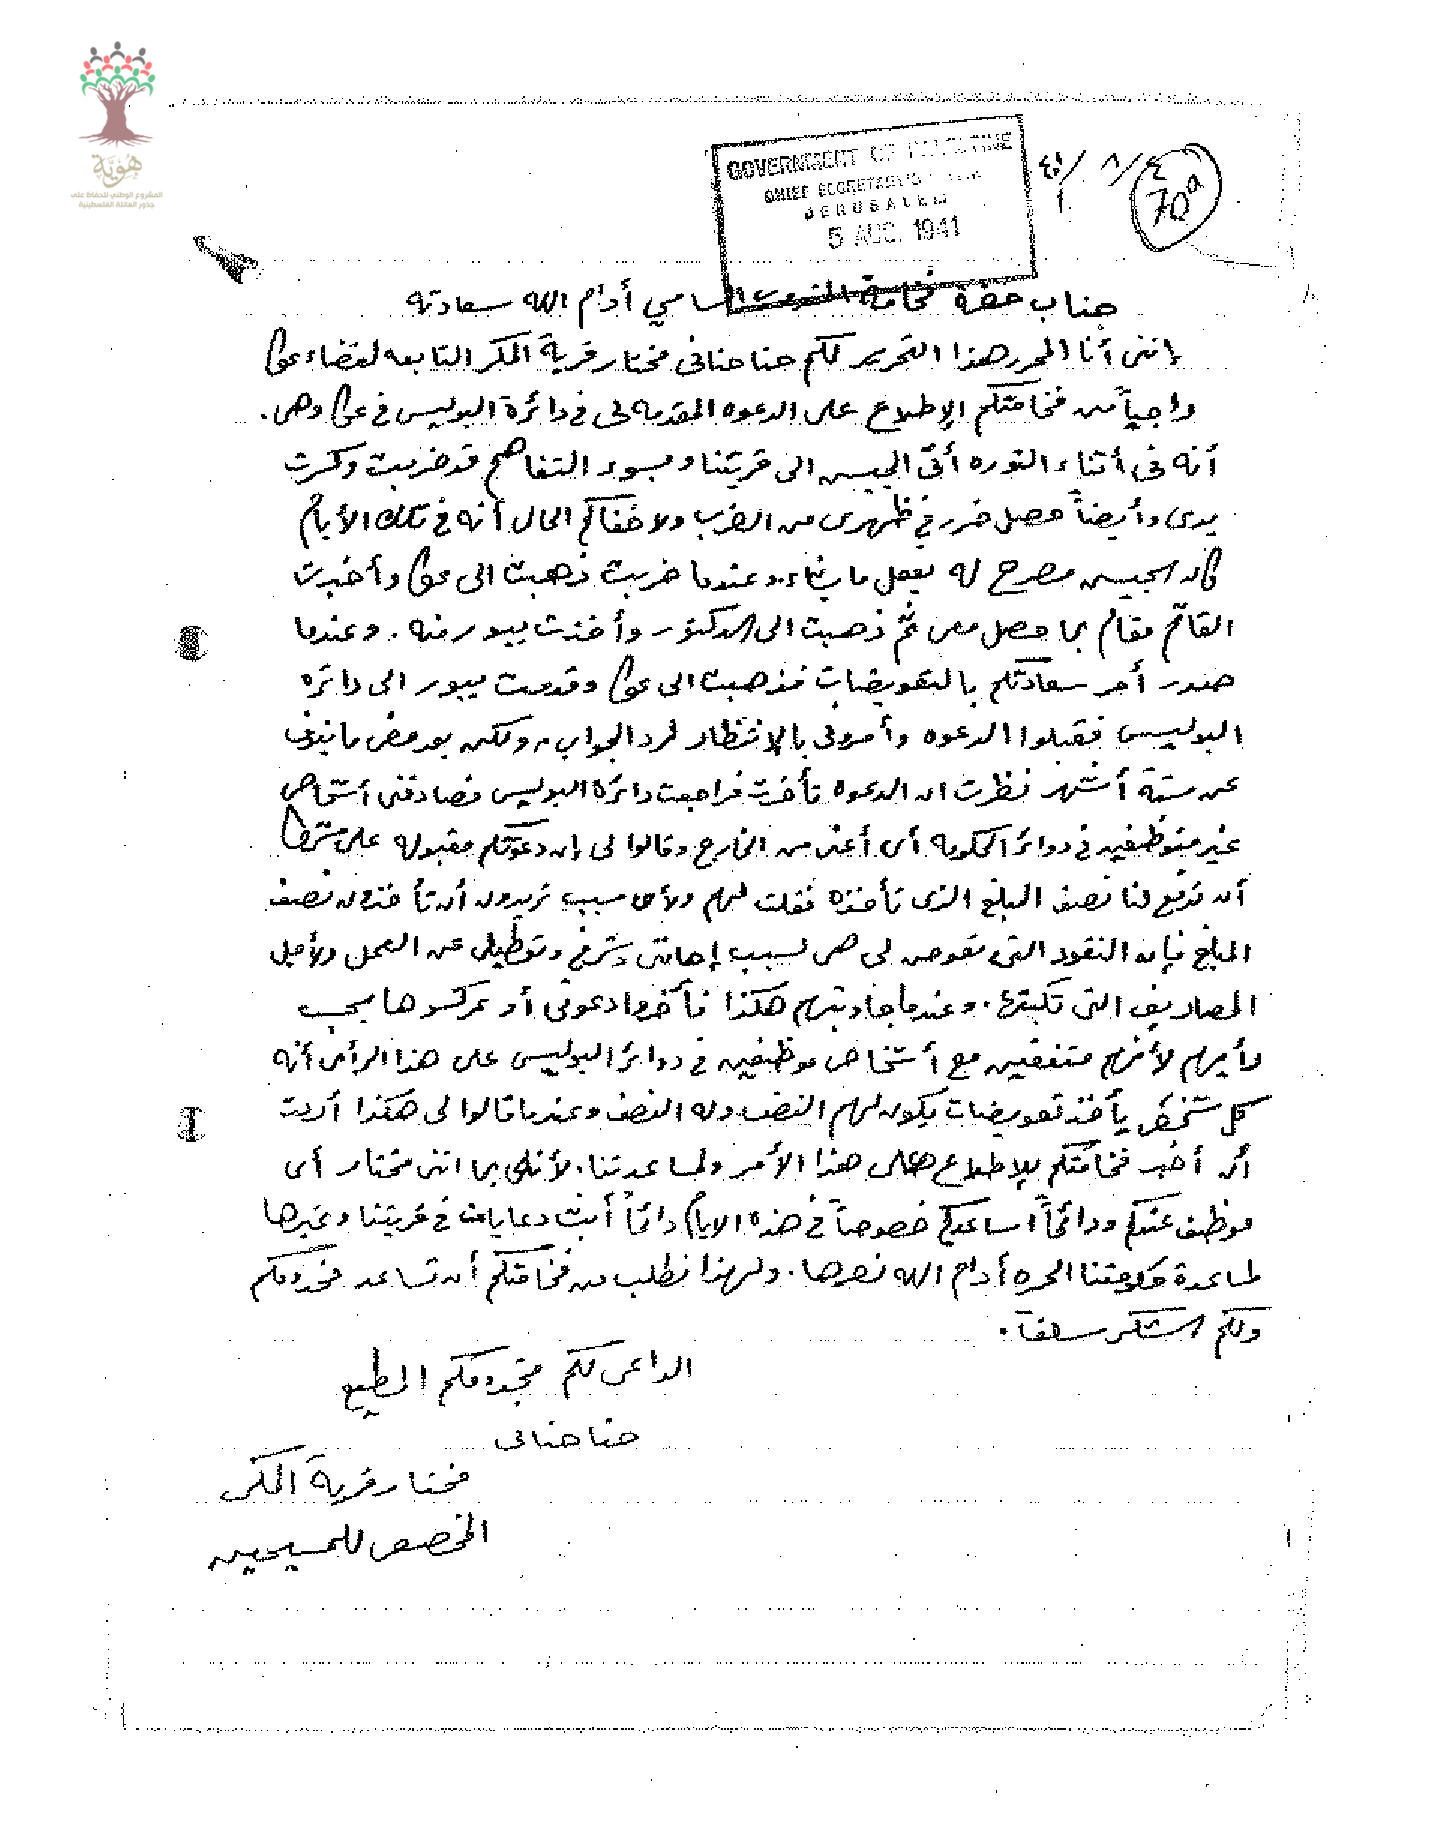 هوية
المشروع الوطني للحفاظ على
جذور العائلة الفلسطينية
GOVERNMENT OF PALESTINE
CHIEF SECRETARY'S
JERUSALEM
5 AUG. 1941
٤/٨/٤١
70a
جناب حضرة فخامة المندوب السامي أدام الله سعادته
إنني أنا المحرر هذا التحرير لكم حنا حناني مختار قرية المكر التابعه لقضاء عكا
راجياً من فخامتكم الإطلاع على الدعوه المقدمه لي في دائرة البوليس في عكا وهي.
أنه في أثناء الثوره أتى الجيش الى قريتنا وبسوء التفاهم قد ضربت وكسرت
يدي وأيضاً حصل ضرر في ظهري من الضرب ولا خفاكم الحال أنه في تلك الأيام
كان الجيش مصرح له يفعل ما يشاء. وعندما ضربت ذهبت الى عكا وأخبرت
القائم مقام بما حصل معي ثم ذهبت الى الدكتور وأخذت ربيور منه. وعندما
صدر أمر سعادتكم بالتعويضات فذهبت الى عكا وقدمت ربيور الى دائرة
البوليس فقبلوا الدعوه وأمروني بالإنتظار لرد الجواب ولكن بعد مضي ما ينوف
عن ستة أشهر نظرت ان الدعوه تأخرت فراجعت دائرة البوليس فصادفني أشخاص
غير متوظفين في دوائر الحكومه أي أعني من الخارج وقالوا لي إن دعوتكم مقبوله على شرط
أن تدفع لنا نصف المبلغ الذي تأخذه فقلت لهم ولأي سبب تريدون أن تأخذون نصف
المبلغ فإن النقود التي تعوض لي هي لسبب إهانتي وشرفي وتعطيلي عن العمل ولأجل
المصاريف التي تكبدتها. وعندما جاوبتهم هكذا فأخروا دعوتي أو عركسوها بحسب
رأيهم لأنهم متفقين مع أشخاص موظفين في دوائر البوليس على هذا الرأي أنه
كل شخص يأخذ تعويضات يكون لهم النصف وله النصف وعندما قالوا لي هكذا أردت
أن أخبر فخامتكم للإطلاع على هذا الأمر ولمساعدتنا. لأنني بما انني مختار أي
موظف عندكم ودائماً أساعدكم خصوصاً في هذه الايام دائماً أبث دعايات في قريتنا وغيرها
لمساعدة حكومتنا الحره أدام الله نصرها. ولهذا نطلب من فخامتكم أن تساعد مخدومكم
ولكم الشكر سلفاً.
الداعي لكم مخدومكم المطيع
حنا حناني
مختار قرية المكر
المخصص للمسيحيين